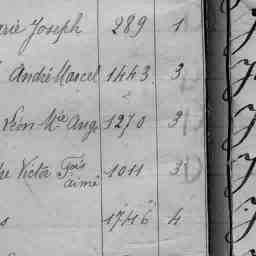 arie Joseph 289 1
André Marcel 1443 3
Léon Mie Ange 1270 3
he Victor Fois aimé 1011 3
s 1746 4